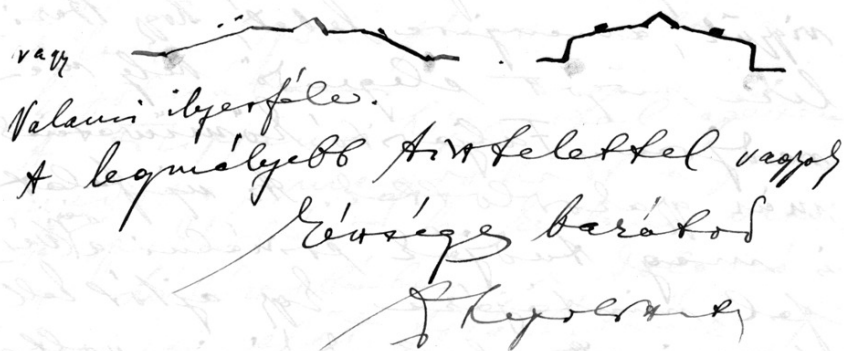 vagy
Valami ilyesféle.
A legmélyebb tisztelettel vagyok
barátod